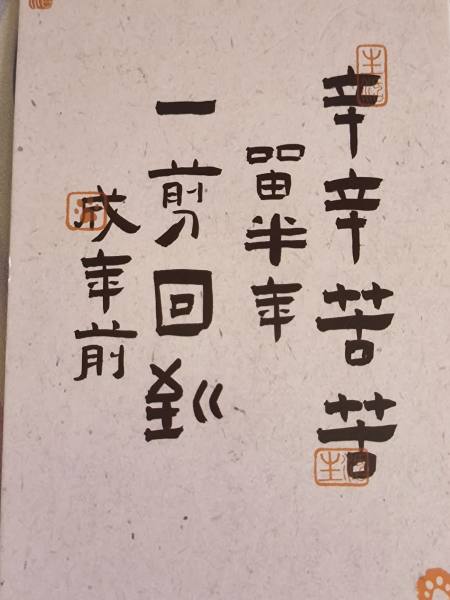 辛辛苦苦
留半年
一剪回到
成年前